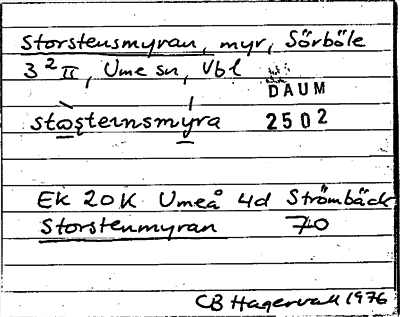 Storstensmyran, myr, Sörböle
3² II, Ume sn, Vbl
DAUM
2502
EK 20K Umeå 4d Strömbäck
Storstenmyran 70
CB Hagervall 1976